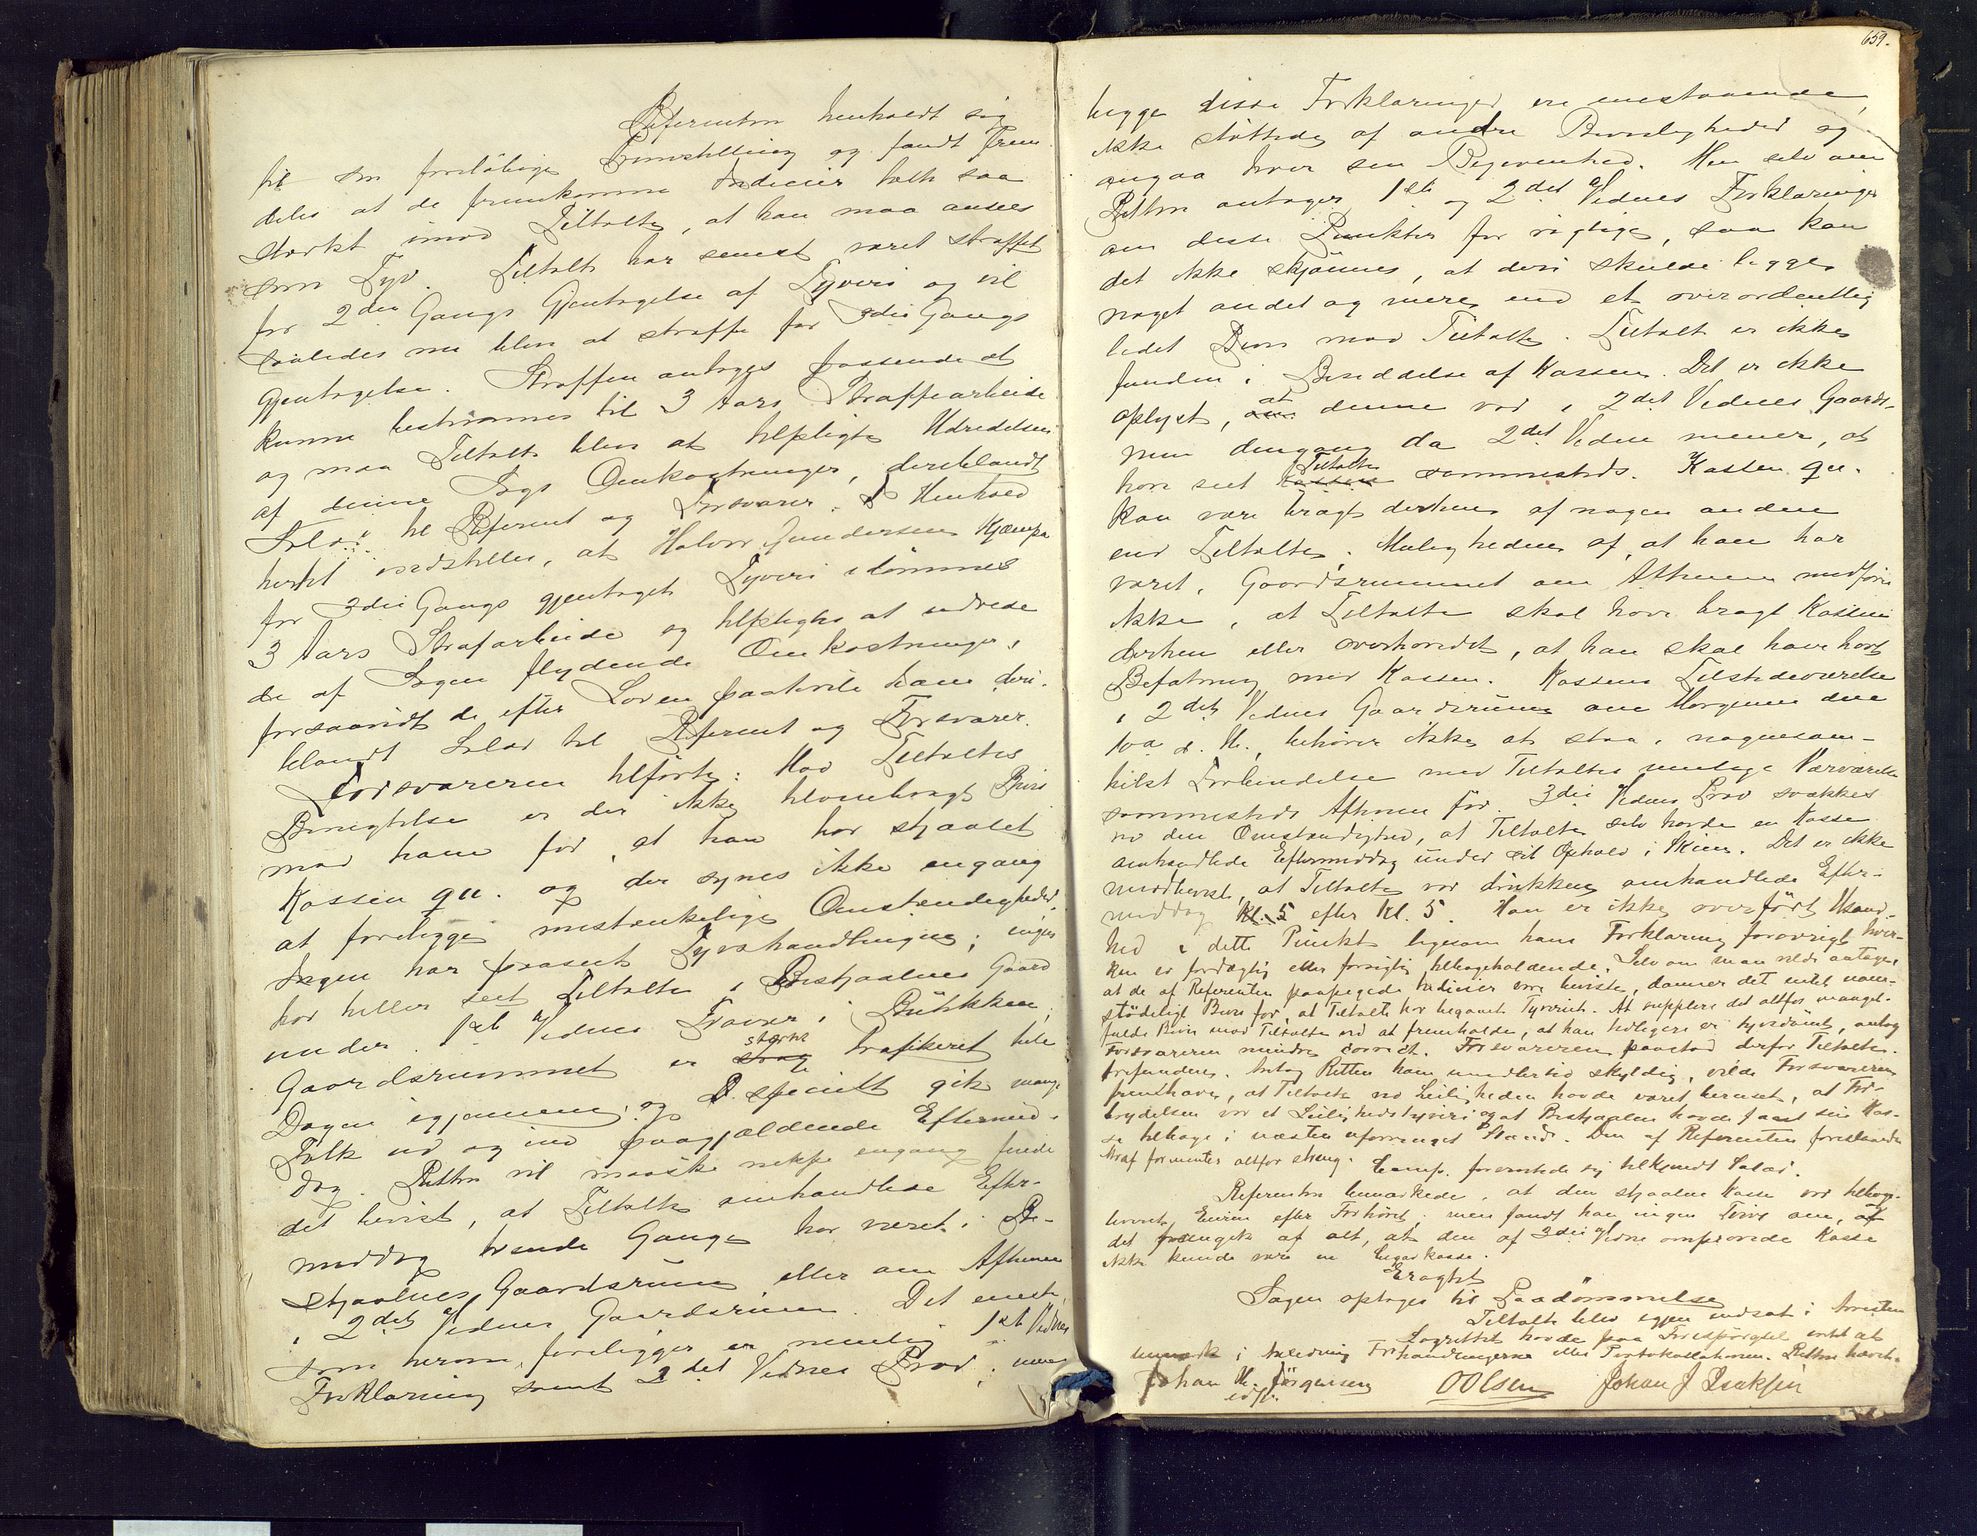 Referenten henholdt sig
til sin foreløbige Fremstilling og fandt frem-
deles at de fremkomne Indicier talte saa
stærkt imod Tiltalte, at han maa ansees
som Tyv. Tiltalte har senest været straffet
for 2den Gangs Gjentagelse af Tyveri og vil
saaledes nu blive at straffe for 3die Gangs
Gjentagelse. Straffen antages passende at
kunne bestemmes til 3 Aars Strafarbeide
og maa Tiltalte blive at tilpligte Udredelsen
af denne Sags Omkostninger, deriblandt
Salær til Referent og Forsvarer. I Henhold
hertil indstilles, at Halvor Gundersen Kjæmpa
for 3die Gangs gjentaget Tyveri idømmes
3 Aars Strafarbeide og tilpligtes at udrede
de af Sagen flydende Omkostninger,
forsaavidt de efter Loven paahvile ham deri-
blandt Salær til Referent og Forsvarer.
Forsvareren tilførte: Mod Tiltaltes
Benegtelse er der ikke tilveiebragt Bevis
mod ham for, at han har stjaalet
Kassen qu. og der synes ikke engang
at foreligge mistænkelige Omstændigheder.
Ingen har paaseet Tyvshandlingen; ingen
har heller seet Tiltalte i Bestjaalnes Gaard
under 1ste Vidnes Fravær i Butikken,
Gaardsrummet er strag stærkt trafikeret hele
Dagen igjennem, og specielt gik mange
Folk ud og ind paagjældende Eftermid-
dag. Retten vil maaske neppe engang finde
det bevist, at Tiltalte omhandlede Efter-
middag tvende Gange har været i Be-
stjaalnes Gaardsrum eller om Aftenen
i 2det Vidnes Gaardsrum. Det eneste,
som herom foreligger er nemlig 1ste Vidnes
Forklaring samt 2det Vidnes Prov; men
659.
begge disse Forklaringer ere enestaaende,
ikke støttede af andre Bevisligheder og
angaa hver sin Begivenhed. Men selv om
Retten antager 1ste og 2det Vidnes Forklaringer
om disse Punkter for rigtige, saa kan
det ikke skjønnes, at deri skulde ligge
noget andet og mere end et overordentlig
ledet Bevis mod Tiltalte. Tiltalte er ikke
funden i Besiddelse af Kassen. Det er ikke
oplyst, om at denne var i 2det Vidnes Gaards-
rum dengang da 2det Vidne mener, at
have seet Kassen Tiltalte sammesteds. Kassen qu.
kan være bragt derhen af nogen anden
end Tiltalte. Muligheden af, at han har
været i Gaardsrummet om Aftenen medfører
ikke, at Tiltalte skal have bragt Kassen
derhen eller overhovedet, at han skal have havt
Befatning med Kassen. Kassens Tilstedeværelse
i 2det Vidnes Gaardsrum om Morgenen den
10de d. M., behøver ikke at staa i nogensom-
helst Forbindelse med Tiltaltes mulige Nærværelse
sammesteds Aftenen før. 3die Vidnes Prov svækkes
ved den Omstændighed, at Tiltalte selv havde en Kasse
omhandlede Eftermiddag under sit Ophold i Skien. Det er ikke
modbevist, at Tiltalte var drukken omhandlede Efter-
middag Kl. 5 efter Kl. 5. Han er ikke overført Usand-
hed i dette Punkt ligesom hans Forklaring forøvrigt hver-
ken er fordægtig eller forsigtig tilbageholdende. Selv om man vilde antage,
at de af Referenten paapegede Indicier vare beviste, danner det intet uom-
stødeligt Bevis for, at Tiltalte har begaaet Tyveriet. At supplere det altfor mangel-
fulde Bevis mod Tiltalte ved at fremholde, at han tidligere er tyvsdømt, antog
Forsvareren mindre correct. Forsvareren paastod derfor Tiltalte
frifunden. Antog Retten ham imidlertid skyldig, vilde Forsvareren
fremhæve, at Tiltalte ved Leiligheden havde været beruset, at For-
brydelsen var et Leilighedstyveri og at Bestjaalne havde faaet sin Kas-
se tilbage i næsten uforringet Stand. Den af Referenten foreslaaede
Straf formentes altfor streng. Comp. foresatte sig tilkjendt Salær.
Referenten bemærkede, at den stjaalne Kasse var tilbage-
leveret Eieren efter Forhøret; men fandt han ingen Tvivl om, at
det fremgik af alt, at den af 3die Vidne omprovede Kasse
ikke kunde være en Cigarkasse.
Eragtet
Sagen optages til Paadømmelse
Tiltalte blev igjen indsat i Arresten
Lagrettet havde paa Forespørgsel intet at
bemærke i Anledning Forhandlingerne eller Protokollationen. Retten hævet.
Johan M. Jørgensen OOlsen Johan J Isaksen
edfr.